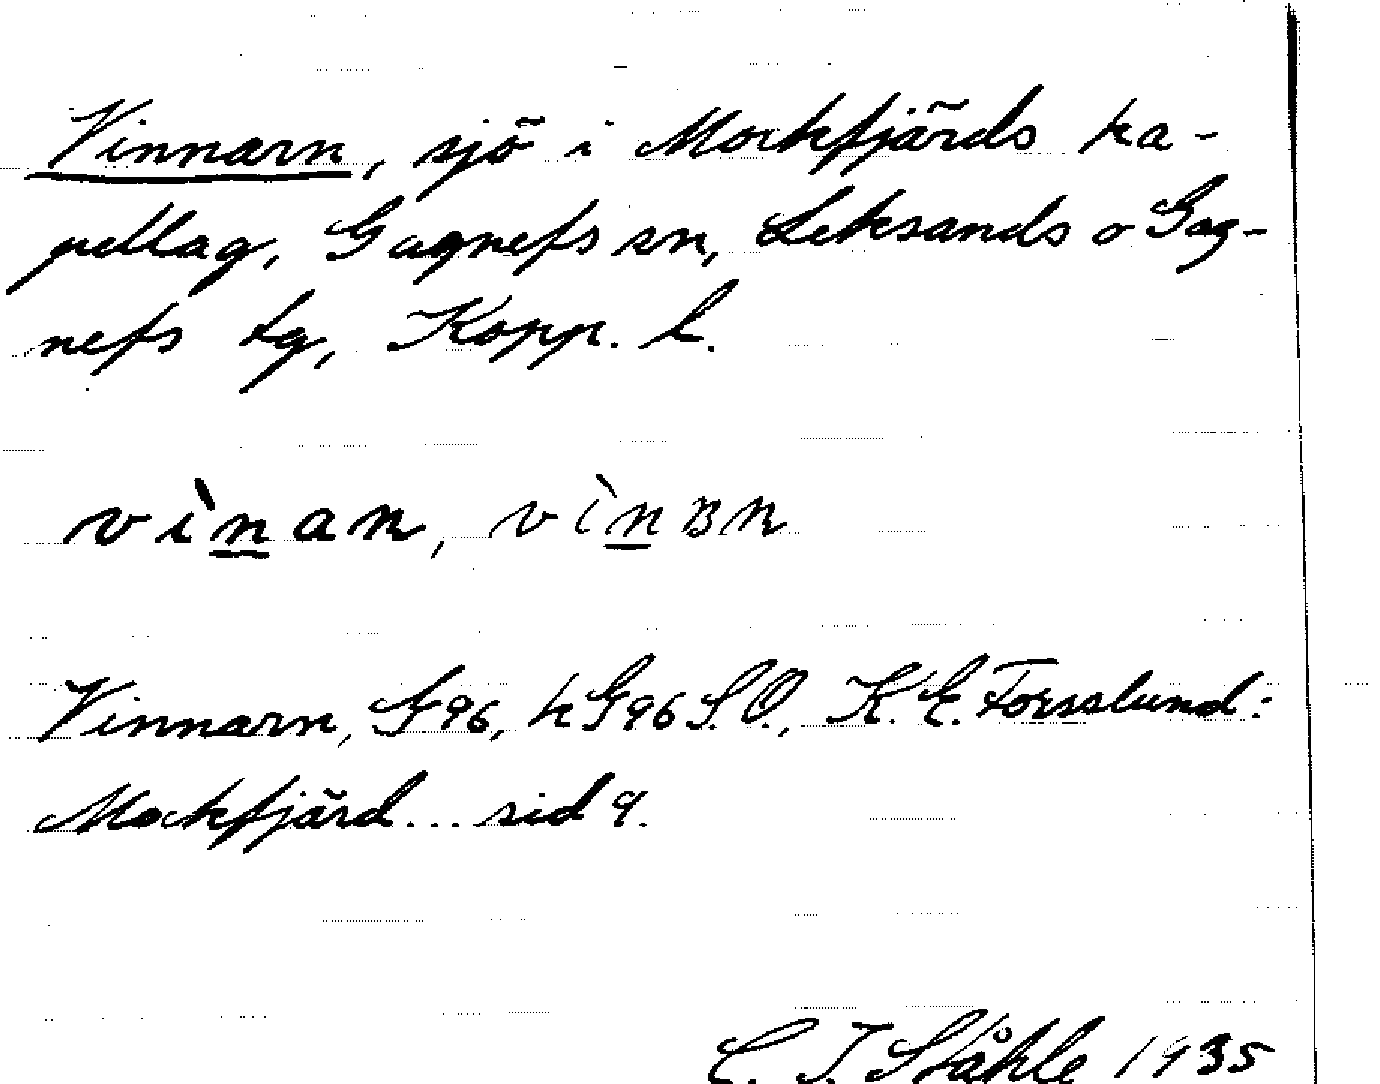 Vinnarn, sjö i Mockfjärds ka-
pellag, Gagnefs sn, Leksands o Gag-
nefs tg, Kopp. l.
vìnan, vìnɞn
Vinnarn, G96, kG96 S.O., K. E. Forsslund:
Mockfjärd... sid 9.
C. I. Ståhle 1935